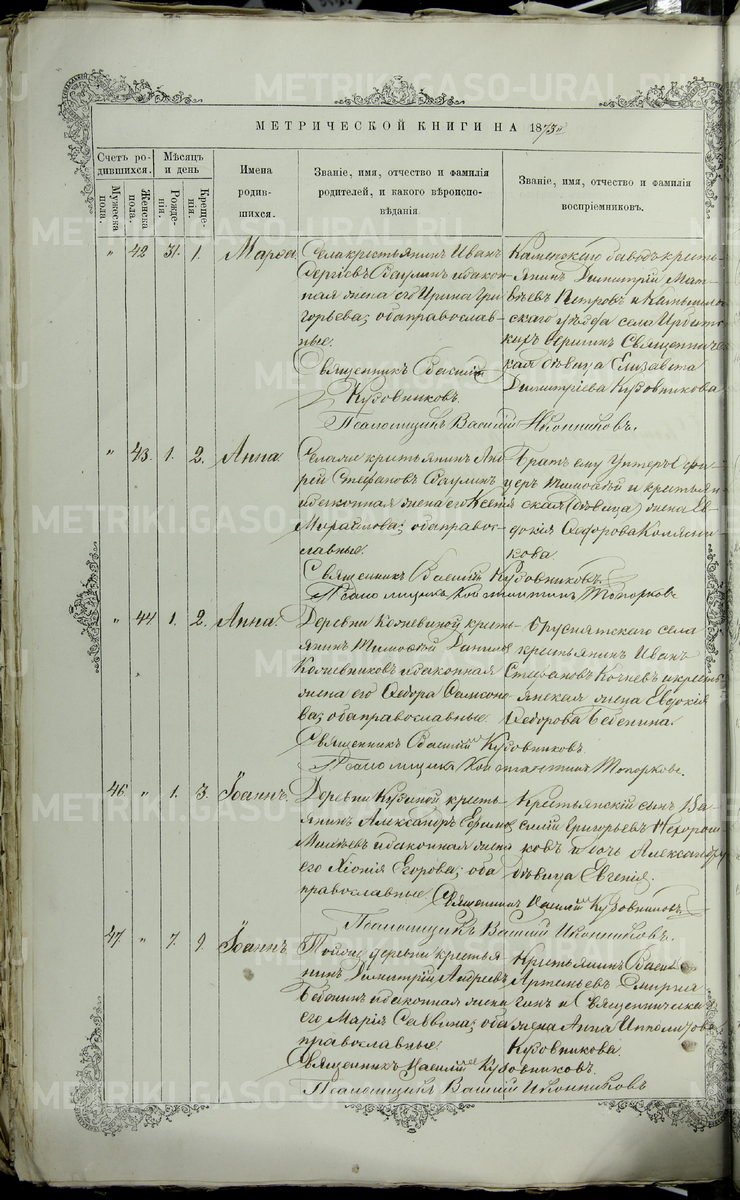 МЕТРИЧЕСКОЙ КНИГИ НА 1875й
Счетъ ро-
дившихся.
Мѣсяцъ
и день
Мужеска
пола.
Женска
пола.
Рожде-
нія.
Креще-
нія.
Имена
родив-
шихся.
Званіе, имя, отчество и фамилія
родителей, и какого вѣроиспо-
вѣданія.
Званіе, имя, отчество и фамилія
воспріемниковъ.
" 42 31. 1. Марѳа
Села крестьянинъ Иванъ
Сергіевъ и закон-
ная жена его Ирина Гри
горьева; оба православ-
ные.
Священникъ Василій
Кудовниковъ.
Псаломщикъ Василій Иконниковъ.
Каменскаго завода кресть-
янинъ Димитрій Мат-
вѣевъ Петровъ и Камышлов
скаго уѣзда села Ирбитс
кихъ Вершинъ Священничес
кая дѣвица Елизавета
Димитріева Кудовникова
" 43. 1. 2. Анна
Села же крестьянинъ Анд
рей Стефановъ
и законная жена его Ксенія
Михайлова; оба правос-
лавные.
Священникъ Василій Кудовниковъ.
Псаломщикъ Константинъ Топорковъ
Братъ ему Унтеръ Офи
церъ Тимоѳей и крестьян
ская (дѣвица) жена Ев
докія Ѳедорова
кова.
" 44 1. 2. Анна.
Деревни Кожевиной кресть-
янинъ Тимоѳей Данилов
Кожевниковъ и законная
жена его Ѳедора Самсоно
ва; оба православные.
Священникъ Василій Кудовниковъ.
Псаломщикъ Константинъ Топорковъ.
Бруснятскаго села
крестьянинъ Иванъ
Стефановъ Кочневъ и кресть
янская жена Евдокія
Ѳедорова Бебенина.
46. " 1. 3. Іоаннъ.
Деревни крест-
янинъ Александръ Ефимов
и законная жена
его Хіонія Егорова; оба
православные. Священникъ Василій Кудовниковъ.
Псаломщикъ Василій Иконниковъ.
Крестьянскій сынъ Ва
силій Григорьевъ Нехорош
ковъ и дочь Александру
дѣвица Евгенія.
47. " 7. 9 Іоаннъ.
Той же деревни крестья
нинъ Димитрій Андреевъ
Бебенинъ и законная жена
его Марія Саввина; оба
православные.
Священникъ Василій Кудовниковъ.
Псаломщикъ Василій Иконниковъ
Крестьянинъ Васил
Артемьевъ Смирня
гинъ и Священническа
жена Анна Ипполитова
Кудовникова.
METRIKI.GASO-URAL.RU